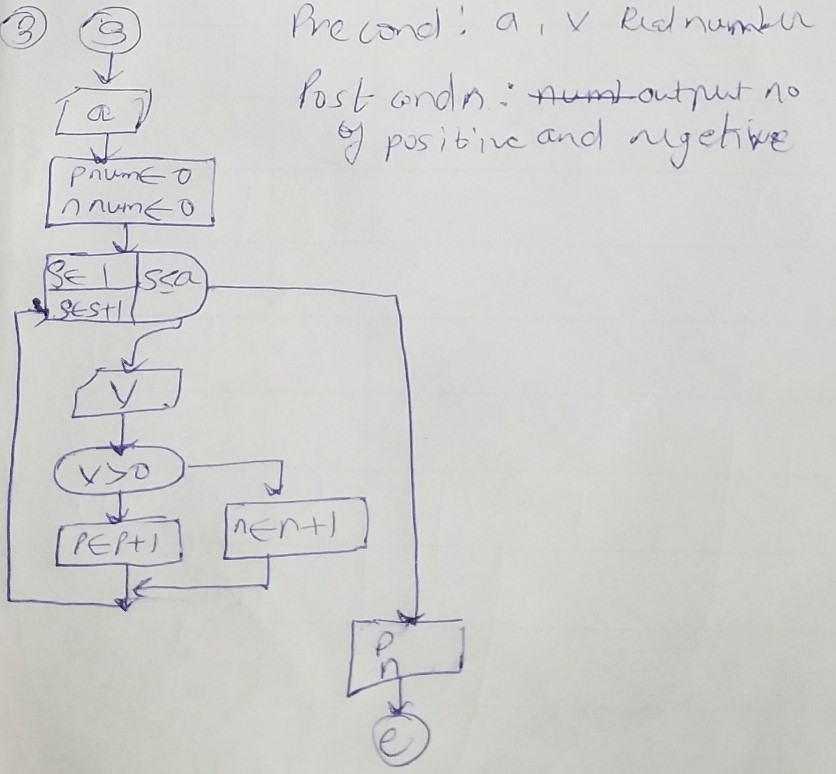 3
S
Precond: a, v Real number
Post condn: output no
of positive and negetive
a
pnum← 0
nnum← 0
S← 1
S≤a
S←S+1
V
V>0
P←P+1
n←n+1
P
n
e